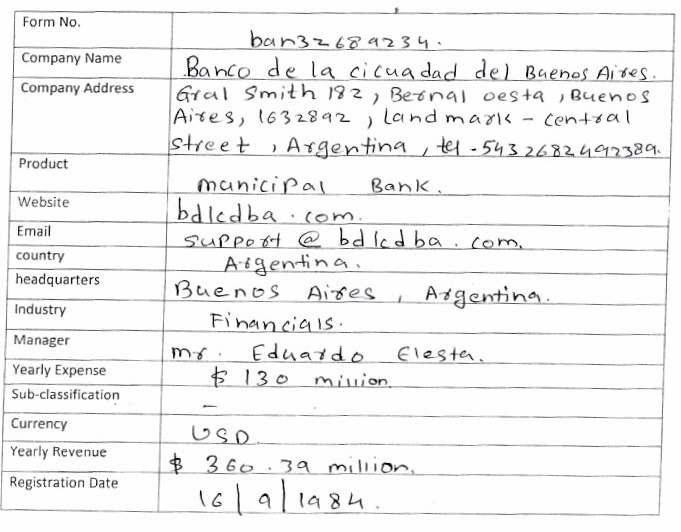 Form No.
ban32689234.
Company Name
Banco de la cicuadad del Buenos Aires.
Company Address
Gral Smith 182, Bernal oesta, Buenos
Aires, 1632892, Landmark - central
street, Argentina, tel - 5432682492389.
Product
municipal Bank.
Website
bdlcdba.com.
Email
support@bdlcdba.com.
country
Argentina.
headquarters
Buenos Aires, Argentina.
Industry
Financials.
Manager
mr. Eduardo Elesta.
Yearly Expense
$ 130 million.
Sub-classification
-
Currency
USD.
Yearly Revenue
$ 360.39 million.
Registration Date
16/9/1984.